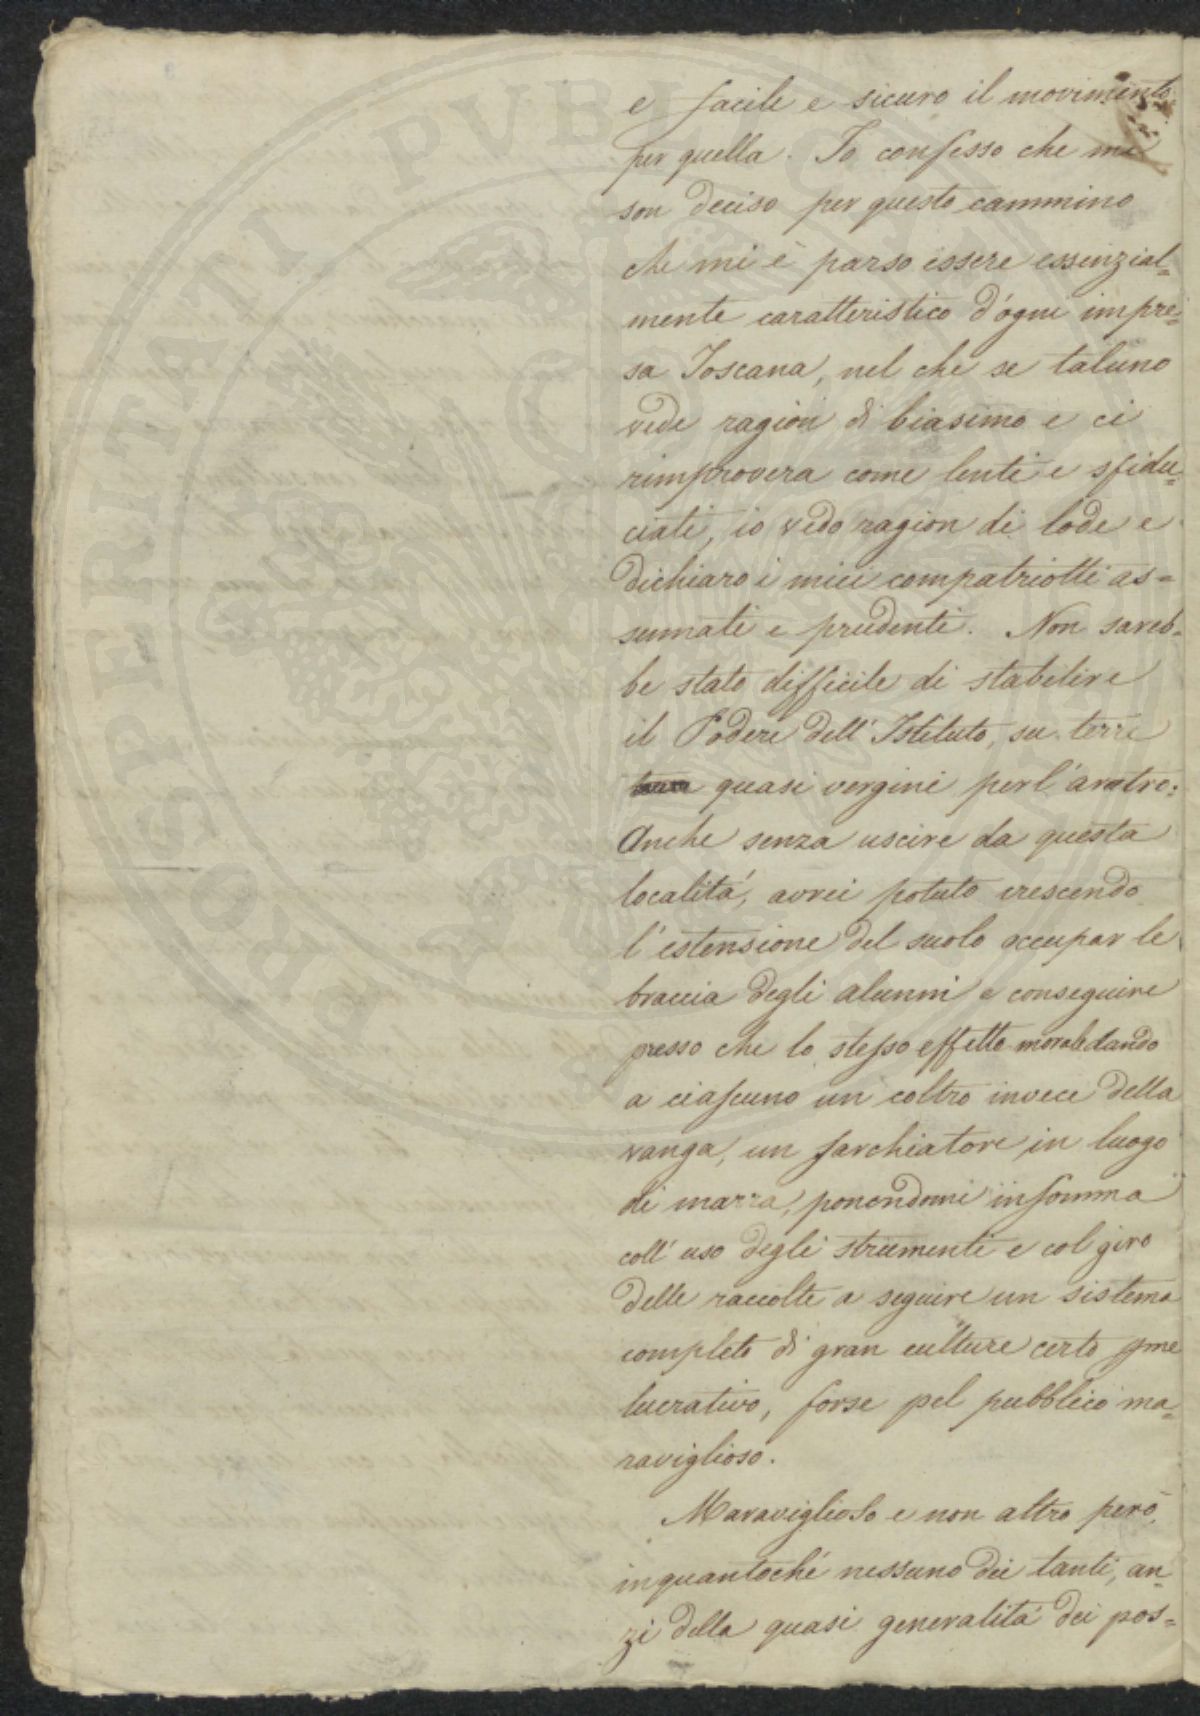 e facile e sicuro il movimento
per quella. Io confesso che me
son deciso per questo cammino
che mi è parso essere essenzial=
mente caratteristico d'ogni impre=
sa Toscana, nel che se taluno
vede ragion di biasimo e ci
rimprovera come lenti e sfidu=
ciati, io vedo ragion di lode e
dichiaro i miei compatriotti as=
sennati e prudenti. Non sareb=
be stato difficile di stabilire
il Podere dell'Istituto, su terre
quasi vergini per l'aratro:
Anche senza uscire da questa
località, avrei potuto crescendo
l'estensione del suolo occupar le
braccia degli alunni e conseguire
presso che lo stesso effetto morale dando
a ciascuno un coltro invece della
vanga, un sarchiatore in luogo
di marra, ponendomi insomma
coll'uso degli strumenti e col giro
delle raccolte a seguire un sistema
completo di gran culture certo
lucrativo, forse pel pubblico ma=
raviglioso.
Maraviglioso e non altro però,
inquantoché nessuno dei tanti, an=
zi della quasi generalità dei pos=
PROSPERITATI PVBLICAE